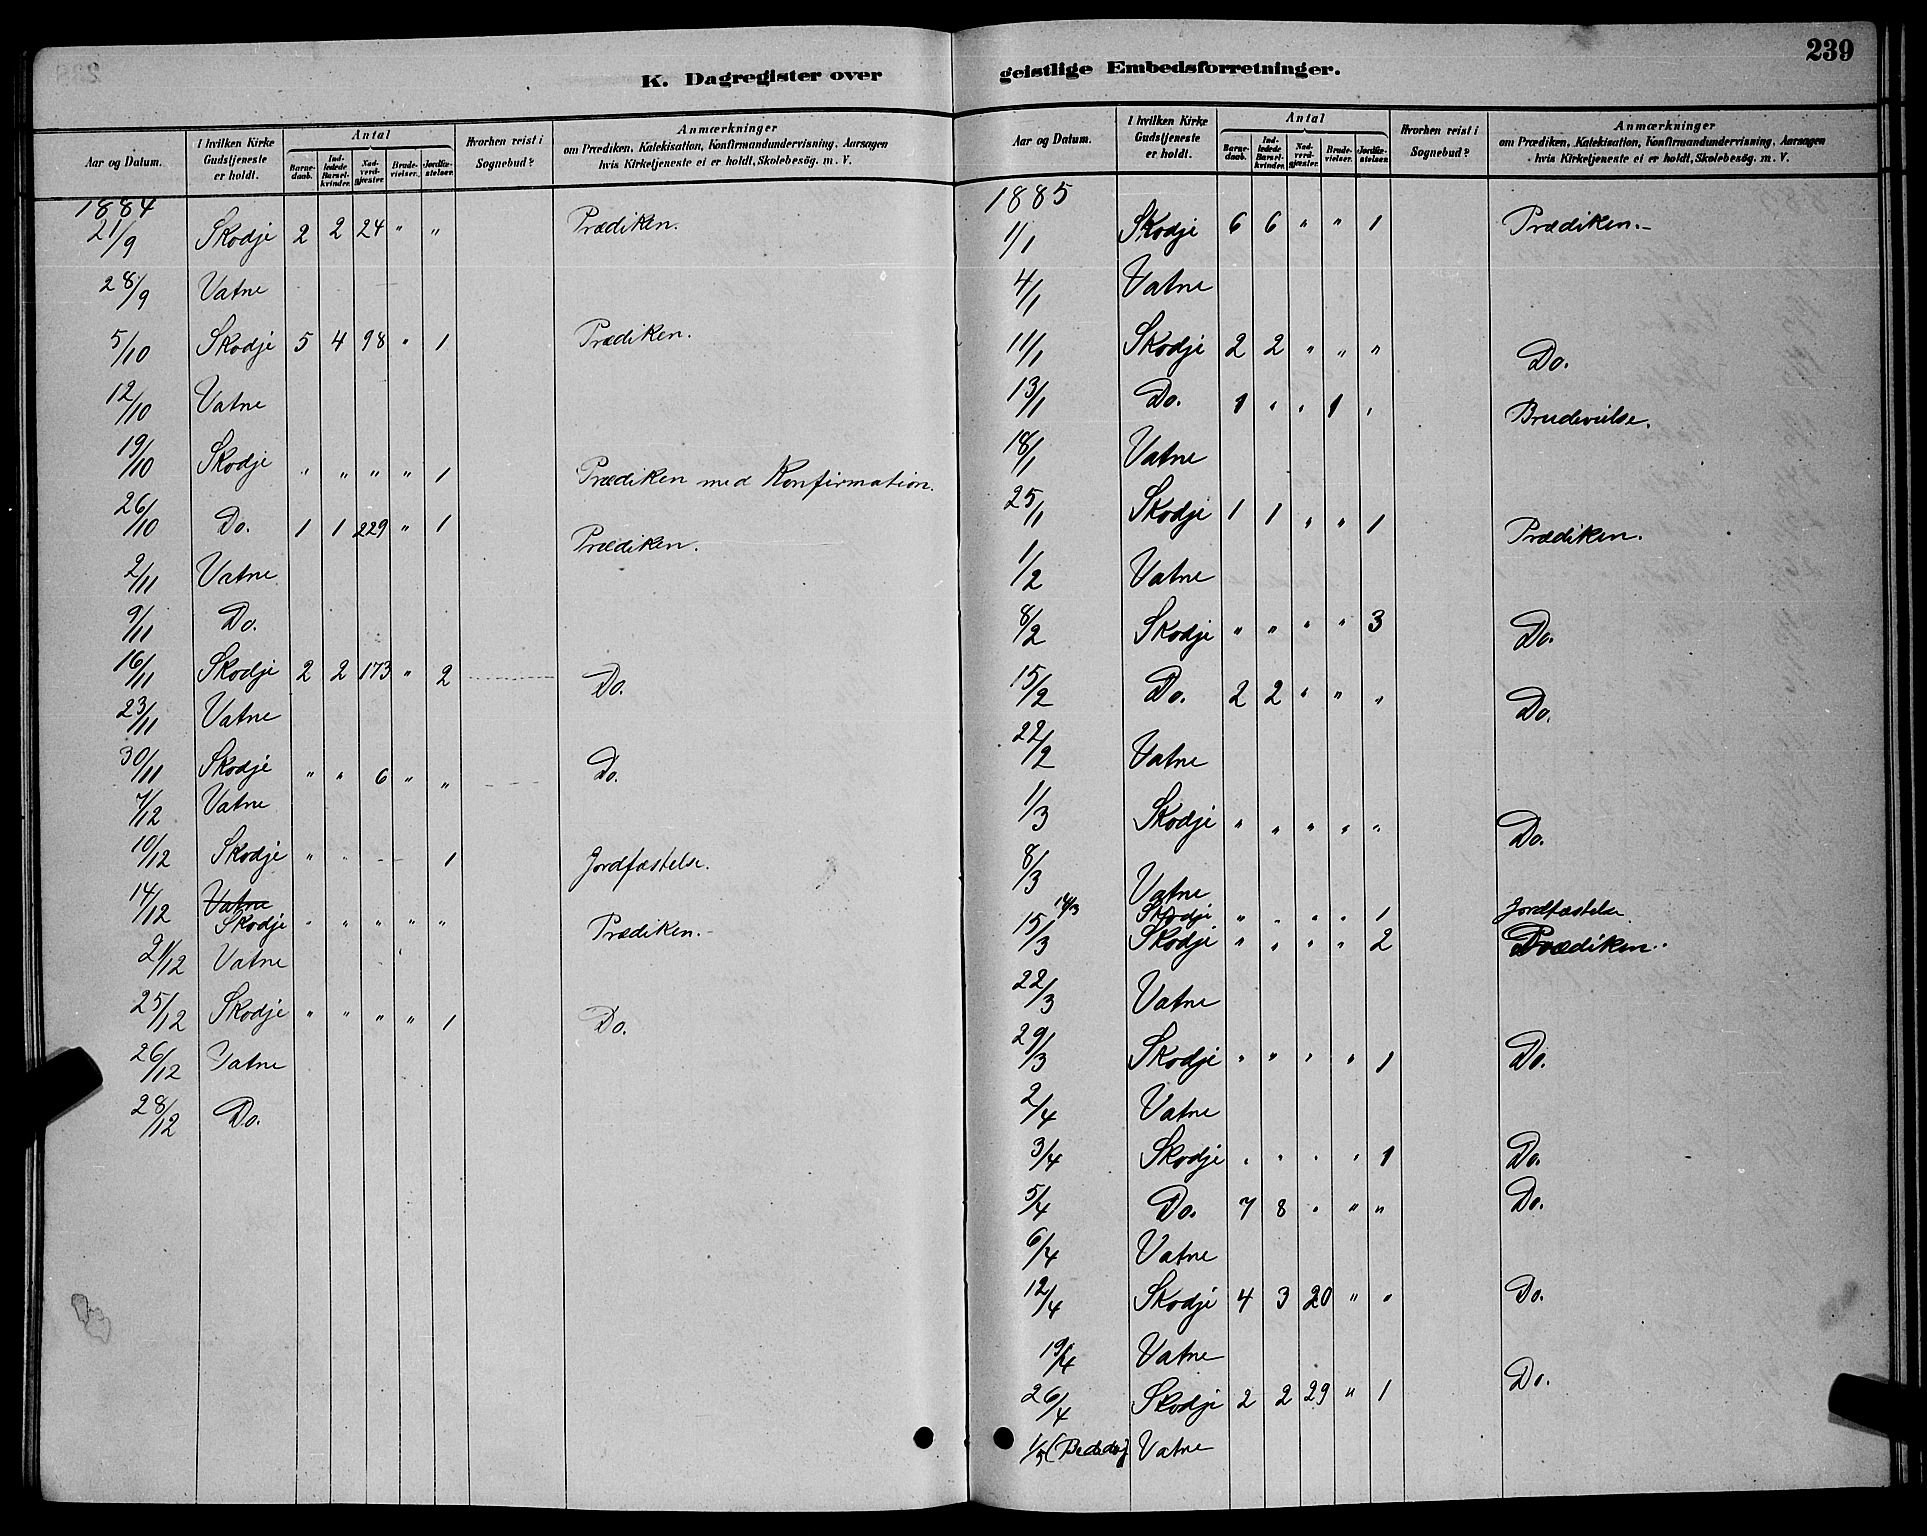 K. Dagregister over
Aar og Datum. I hvilken Kirke Gudstjeneste er holdt. Antal Barne-daab. Ind-ledede Barsel-kvinder. Nad-verd-gjæster. Brude-vielser. Jordfæ-stelser. Hvorhen reist i Sognebud? Anmærkninger om Prædiken, Katekisation, Konfirmandundervisning, Aarsagen hvis Kirketjeneste ei er holdt, Skolebesög. m. V.
1884
21/9 Skodje 2 2 24 " " Prædiken.
28/9 Vatne
5/10 Skodje 5 4 98 " 1 Prædiken.
12/10 Vatne
19/10 Skodje " " " " 1 Prædiken med Konfirmation.
26/10 Do. 1 1 229 " 1 Prædiken.
2/11 Vatne
9/11 Do.
16/11 Skodje 2 2 173 " 2 Do.
23/11 Vatne
30/11 Skodje " " 6 " " Do.
7/12 Vatne
10/12 Skodje " " - - 1 Jordfæstelse.
14/12 Vatne
Skodje " " " " " Prædiken.-
21/12 Vatne
25/12 Skodje " " " " 1 Do.
26/12 Vatne
28/12 Do.
geistlige Embedsforretninger.
239
Aar og Datum. I hvilken Kirke Gudstjeneste er holdt. Antal Barne-daab. Ind-ledede Barsel-kvinder. Nad-verd-gjæster. Brude-vielser. Jordfæ-stelser Hvorhen reist i Sognebud? Anmærkninger om Prædiken, Katekisation, Konfirmandundervisning, Aarsagen hvis Kirketjeneste ei er holdt, Skolebesög. m. V.
1885
1/1 Skodje 6 6 " " 1 Prædiken.-
4/1 Vatne
11/1 Skodje 2 2 " " " Do.
13/1 Do. 1 " " 1 " Brudevielse.
18/1 Vatne
25/1 Skodje 1 1 " " 1 Prædiken.
1/2 Vatne
8/2 Skodje " " " " 3 Do.
15/2 Do. 2 2 " " " Do.
22/2 Vatne
1/3 Skodje " " " " " Do.
8/3 Vatne
14/3 Skodje " " " " 1 Jordfæstelse
15/3 Skodje " " " " 2 Prædiken..
22/3 Vatne
29/3 Skodje " " " " 1 Do.
2/4 Vatne
3/4 Skodje " " " " 1 Do.
5/4 Do. 7 8 " " " Do.
6/4 Vatne
12/4 Skodje 4 3 20 " " Do.
19/4 Vatne
26/4 Skodje 2 2 29 " 1 Do.
1/5 (Bededag) Vatne